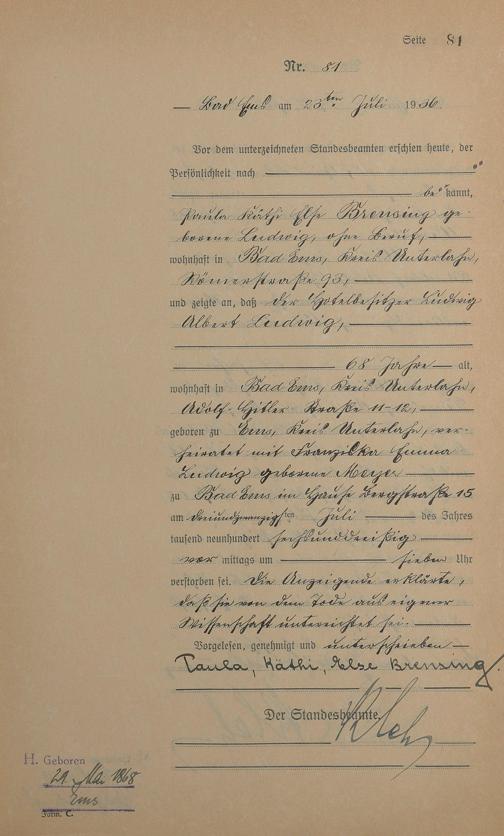 Seite 81
Nr. 81
Bad Ems am 23ten Juli 1936.
Vor dem unterzeichneten Standesbeamten erschien heute, der
Persönlichkeit nach
bekannt,
Paula Käthi Else Brensing ge-
borene Ludwig, ohne Beruf,
wohnhaft in Bad Ems, Kreis Unterlahn,
Römerstraße 93,
und zeigte an, daß der Hotelbesitzer Ludwig
Albert Ludwig,
68 Jahre alt,
wohnhaft in Bad Ems, Kreis Unterlahn,
Adolf-Hitler Straße 11-12,
geboren zu Ems, Kreis Unterlahn, ver-
heiratet mit Franziska Emma
Ludwig geborene Meyer
zu Bad Ems im Hause Bergstraße 15
am dreiundzwanzigsten Juli des Jahres
tausend neunhundert sechsunddreißig
vor mittags um sieben Uhr
verstorben sei. Die Anzeigende erklärte,
daß sie von dem Tode aus eigener
Wissenschaft unterrichtet sei.
Vorgelesen, genehmigt und unterschrieben
Paula, Käthi, Else Brensing.
Der Standesbeamte.
H. Geboren
29. Mai 1868
Ems
Form. C.